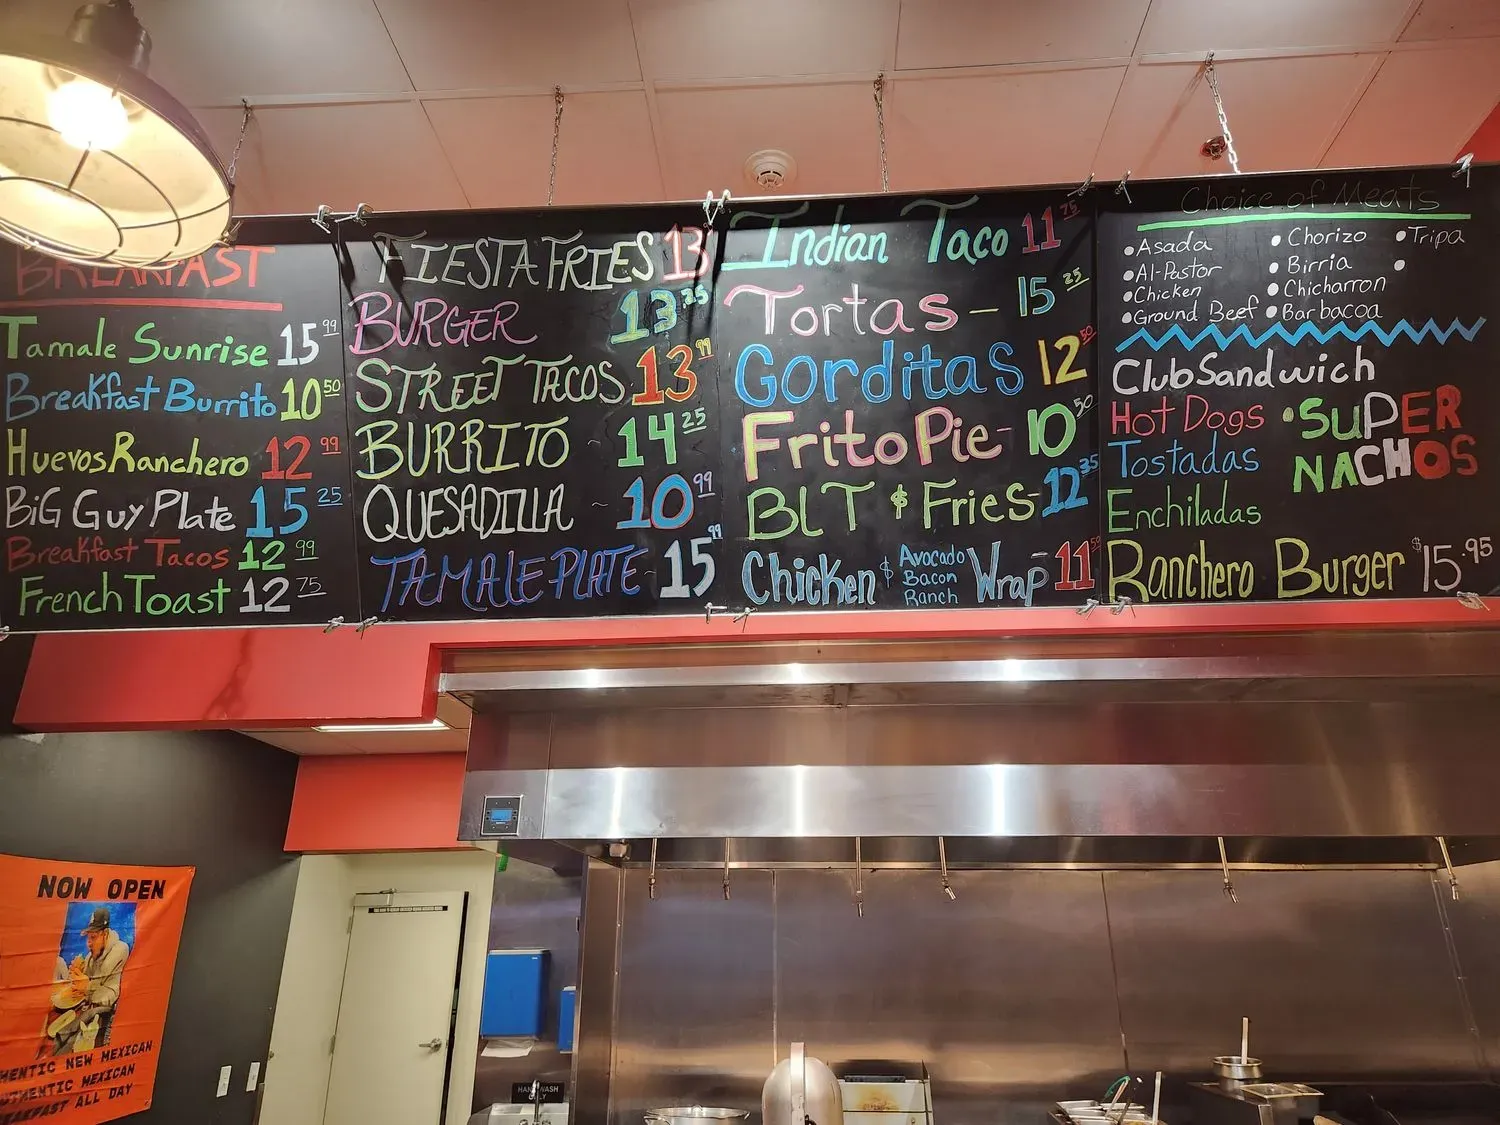 BREAKFAST
Tamale Sunrise 15 99
Breakfast Burrito 10 50
Huevos Ranchero 12 99
BiG Guy Plate 15 25
Breakfast Tacos 12 99
French Toast 12 75
FIESTA FRIES 13
BURGER 13 25
STREET TACOS 13 99
BURRITO ~ 14 25
QUESADILLA ~ 10 99
TAMALE PLATE - 15 99
Indian Taco 11 75
Tortas - 15 25
Gorditas 12 50
Frito Pie - 10 50
BLT & Fries - 12 35
Chicken & Avocado Bacon Ranch Wrap - 11 50
Choice of Meats
• Asada
• Al-Pastor
• Chicken
• Ground Beef
• Chorizo
• Birria
• Chicharron
• Barbacoa
• Tripa
•
Club Sandwich
Hot Dogs
Tostadas
Enchiladas
• SuPER
NACHOS
Ranchero Burger $15.95
NOW OPEN
HENTIC NEW MEXICAN
UTHENTIC MEXICAN
EAKFAST ALL DAY
HANDWASH
ONLY